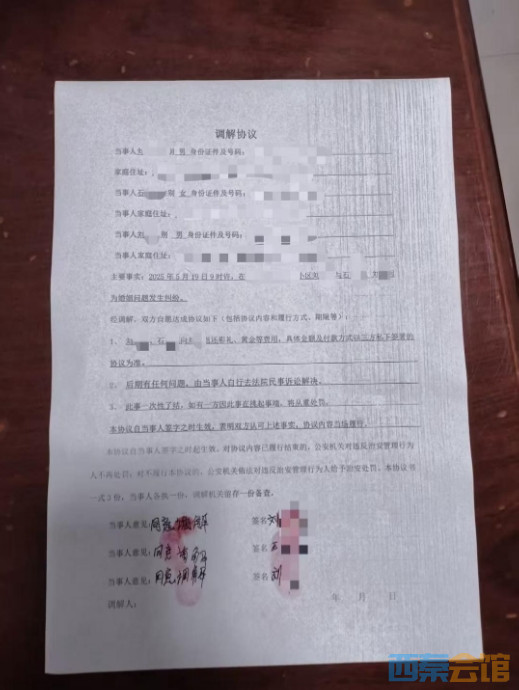 调解协议
当事人 男 身份证件及号码：
家庭住址：
当事人石 身份证件及号码：
当事人家庭住址：
当事人 男 身份证件及号码：
当事人家庭住址：
主要事实： 年5月19日9时许，在 小区 与石
为婚姻问题发生纠纷。
经调解，双方自愿达成协议如下（包括协议内容和履行方式、期限等）：
1、 彩礼、黄金等费用，具体金额及付款方式以三方私下签定的
协议为准。
2、后期有任何问题，由当事人自行去法院民事诉讼解决。
3、此事一次性了结，如有一方因此事在挑起事端，将从重处罚。
本协议自当事人签字之时生效，表明双方认可上述事实，协议内容当场履行。
本协议自当事人签字之时起生效。对协议内容已履行结束的，公安机关对违反治安管理行为
人不再处罚；对不履行本协议的，公安机关依法对违反治安管理行为人给予治安处罚。本协议书
一式3份，当事人各执一份，调解机关留存一份备查。
当事人意见：同意调解 签名 刘
当事人意见：同意调解 签名 石
当事人意见：同意调解 签名 刘
调解人： 年 月 日
西秦会馆